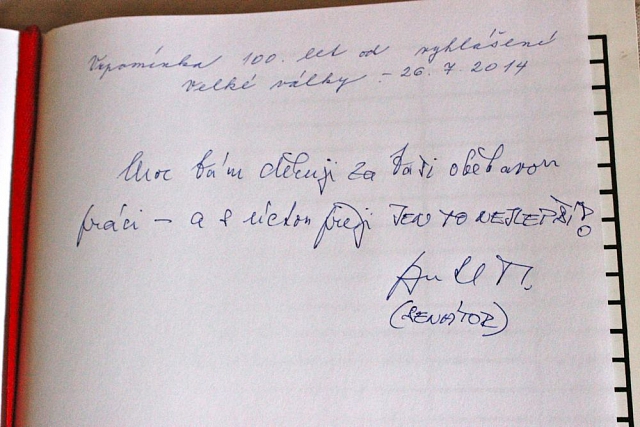 Vzpomínka 100. let od vyhlášení
velké války - 26. 7. 2014
Moc Vám děkuji za Vaši obětavou
práci - a s úctou přeji JEN TO NEJLEPŠÍ!
(SENÁTOR)